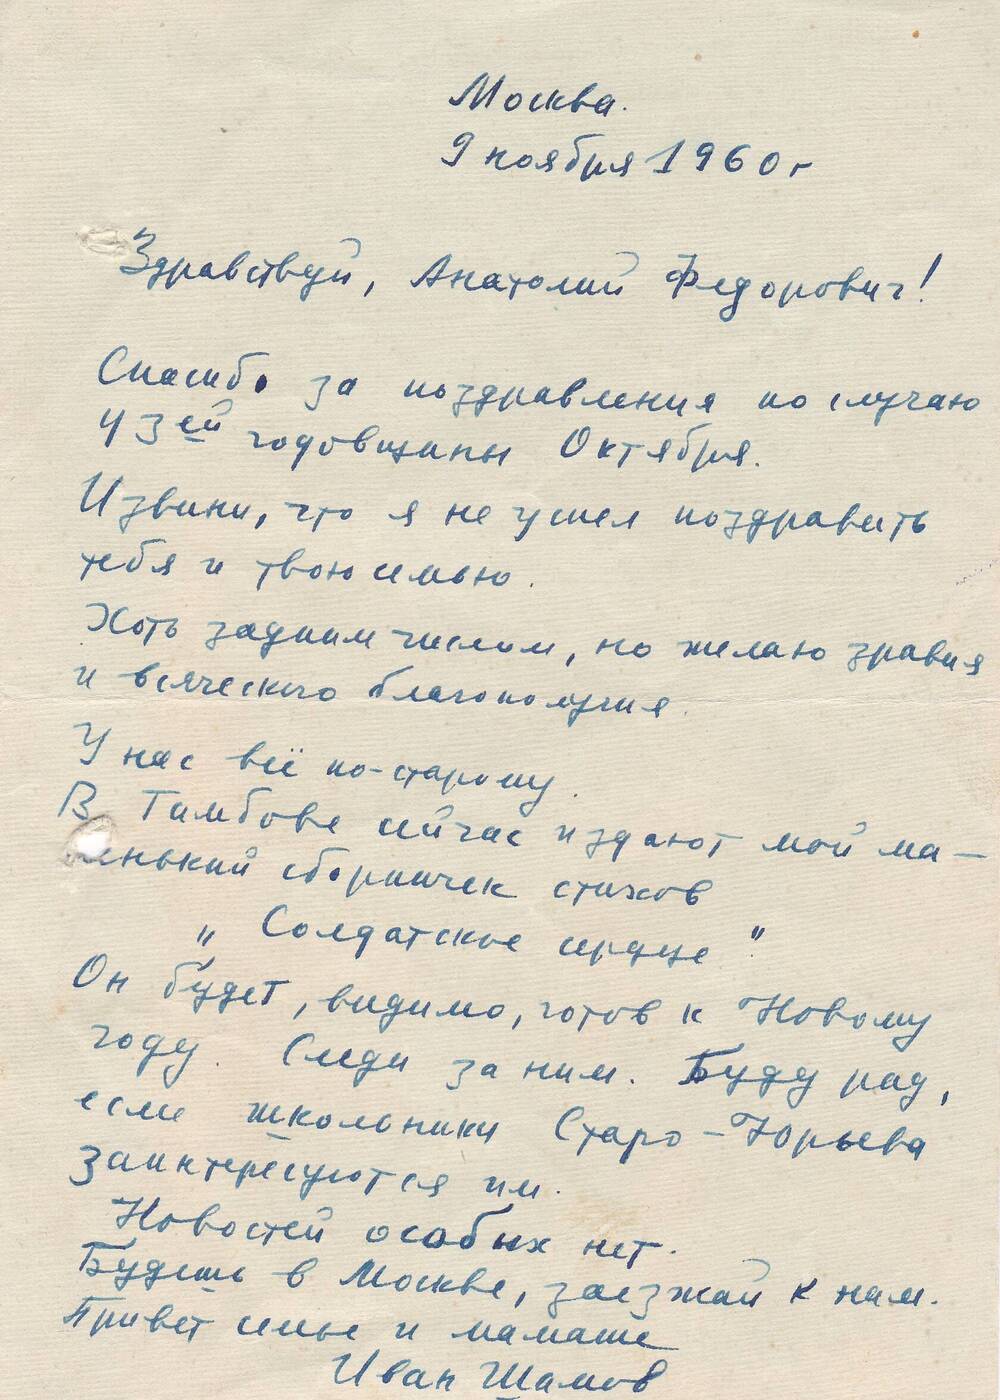 Москва.
9 ноября 1960 г
Здравствуй, Анатолий Федорович!
Спасибо за поздравления по случаю
43ей годовщины Октября.
Извини, что я не успел поздравить
тебя и твою семью.
Хоть задним числом, но желаю здравия
и всяческого благополучия.
У нас всё по-старому.
В Тамбове сейчас издают мой ма-
ленький сборничек стихов
„Солдатское сердце"
Он будет, видимо, готов к Новому
году. Следи за ним. Буду рад,
если школьники Старо-Юрьева
заинтересуются им.
Новостей особых нет.
Будешь в Москве, заезжай к нам.
Привет семье и мамаше
Иван Шамов